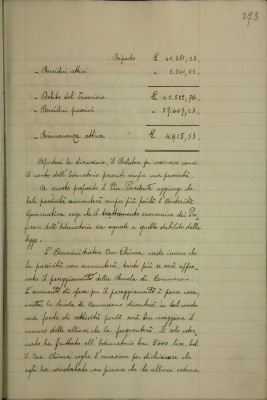 273
Riporto £ 40.281,23
- Residui attivi " 2.241,53
- Debito del Tesoriere £ 42.522,76
- Residui passivi " 37.607,23
- Rimanenza attiva £ 4.915,53
Apertasi la discussione, il Relatore fa osservare come
il conto dell'Educatorio presenti ancora una passività.
A questo proposito il Vice Presidente aggiunge che
tale passività aumenterà ancora più poiché l'Autorità
Governativa esige che il trattamento economico dei Pro-
fessori dell'Educatorio sia eguale a quello stabilito dalla
legge.
L'Amministratore Cav. Chima crede invece che
la passività non aumenterà, tanto più se verrà appro-
vato il pareggiamento della Scuola di Commercio.
L'aumento di spesa per il pareggiamento è poca cosa,
mentre la Scuola di Commercio diventerà in tal modo
una fonte di attività perché sarà ben maggiore il
numero delle allieve che la frequenterà. Il solo ester-
nato ha fruttato all'Educatorio ben 5000 lire, ed
il Cav. Chima coglie l'occasione per dichiarare che
egli ha constatato con piacere che le allieve esterne